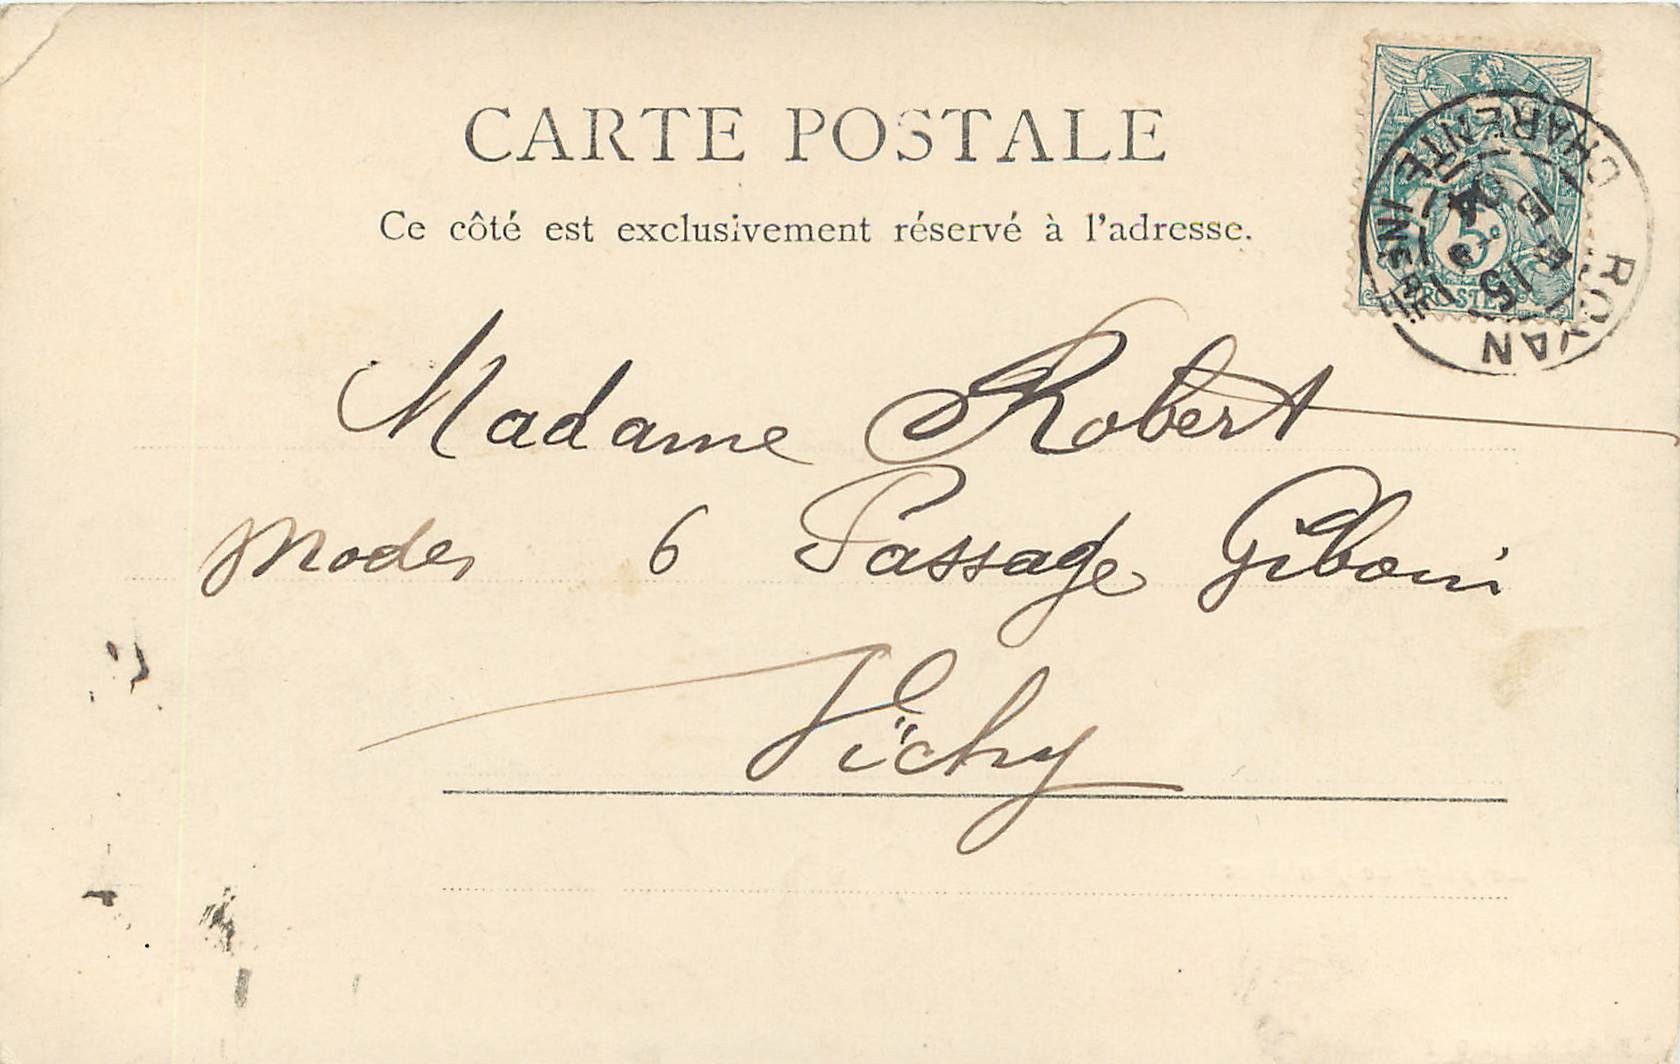 CARTE POSTALE
Ce côté est exclusivement réservé à l'adresse.
ROYAN
CHARENTE INFRE
15
04
5
POSTES
Madame Robert
Modes 6 Passage Giboin
Vichy